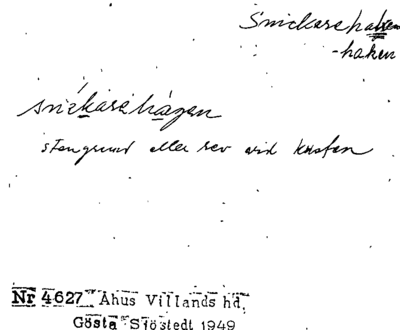 Snickarehaken
-haken
snickarehågen
stengrund eller rev vid kusten
Nr 4627 Åhus Villands hd,
Gösta Sjöstedt 1949